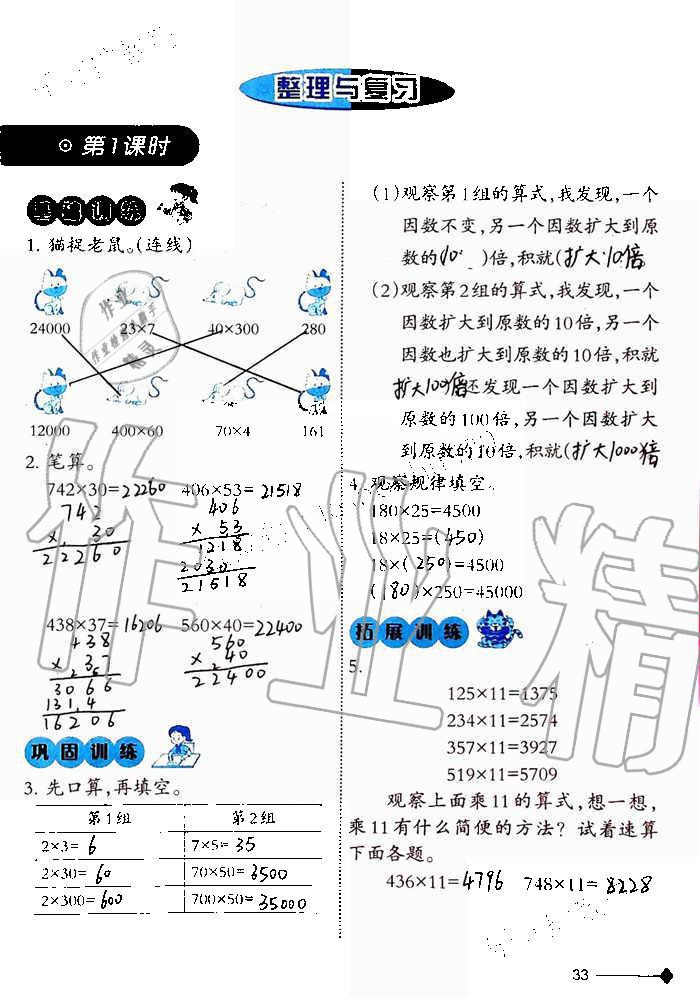 整理与复习
第1课时
基础训练
1. 猫捉老鼠。(连线)
24000 23×7 40×300 280
12000 400×60 70×4 161
2. 笔算。
742×30=22260 406×53=21518
742 406
× 30 × 53
22260 1218
2030
21518
438×37=16206 560×40=22400
438 560
× 37 × 40
3066 22400
1314
16206
巩固训练
3. 先口算,再填空。
第1组 第2组
2×3=6 7×5=35
2×30=60 70×50=3500
2×300=600 700×50=35000
(1)观察第1组的算式,我发现,一个
因数不变,另一个因数扩大到原
数的(10 )倍,积就(扩大10倍
(2)观察第2组的算式,我发现,一个
因数扩大到原数的10倍,另一个
因数也扩大到原数的10倍,积就
扩大100倍 还发现一个因数扩大到
原数的100倍,另一个因数扩大
到原数的10倍,积就(扩大1000倍
4. 观察规律填空。
180×25=4500
18×25=(450)
18×(250)=4500
(180)×250=45000
拓展训练
5.
125×11=1375
234×11=2574
357×11=3927
519×11=5709
观察上面乘11的算式,想一想,
乘11有什么简便的方法?试着速算
下面各题。
436×11=4796 748×11=8228
33
作业精